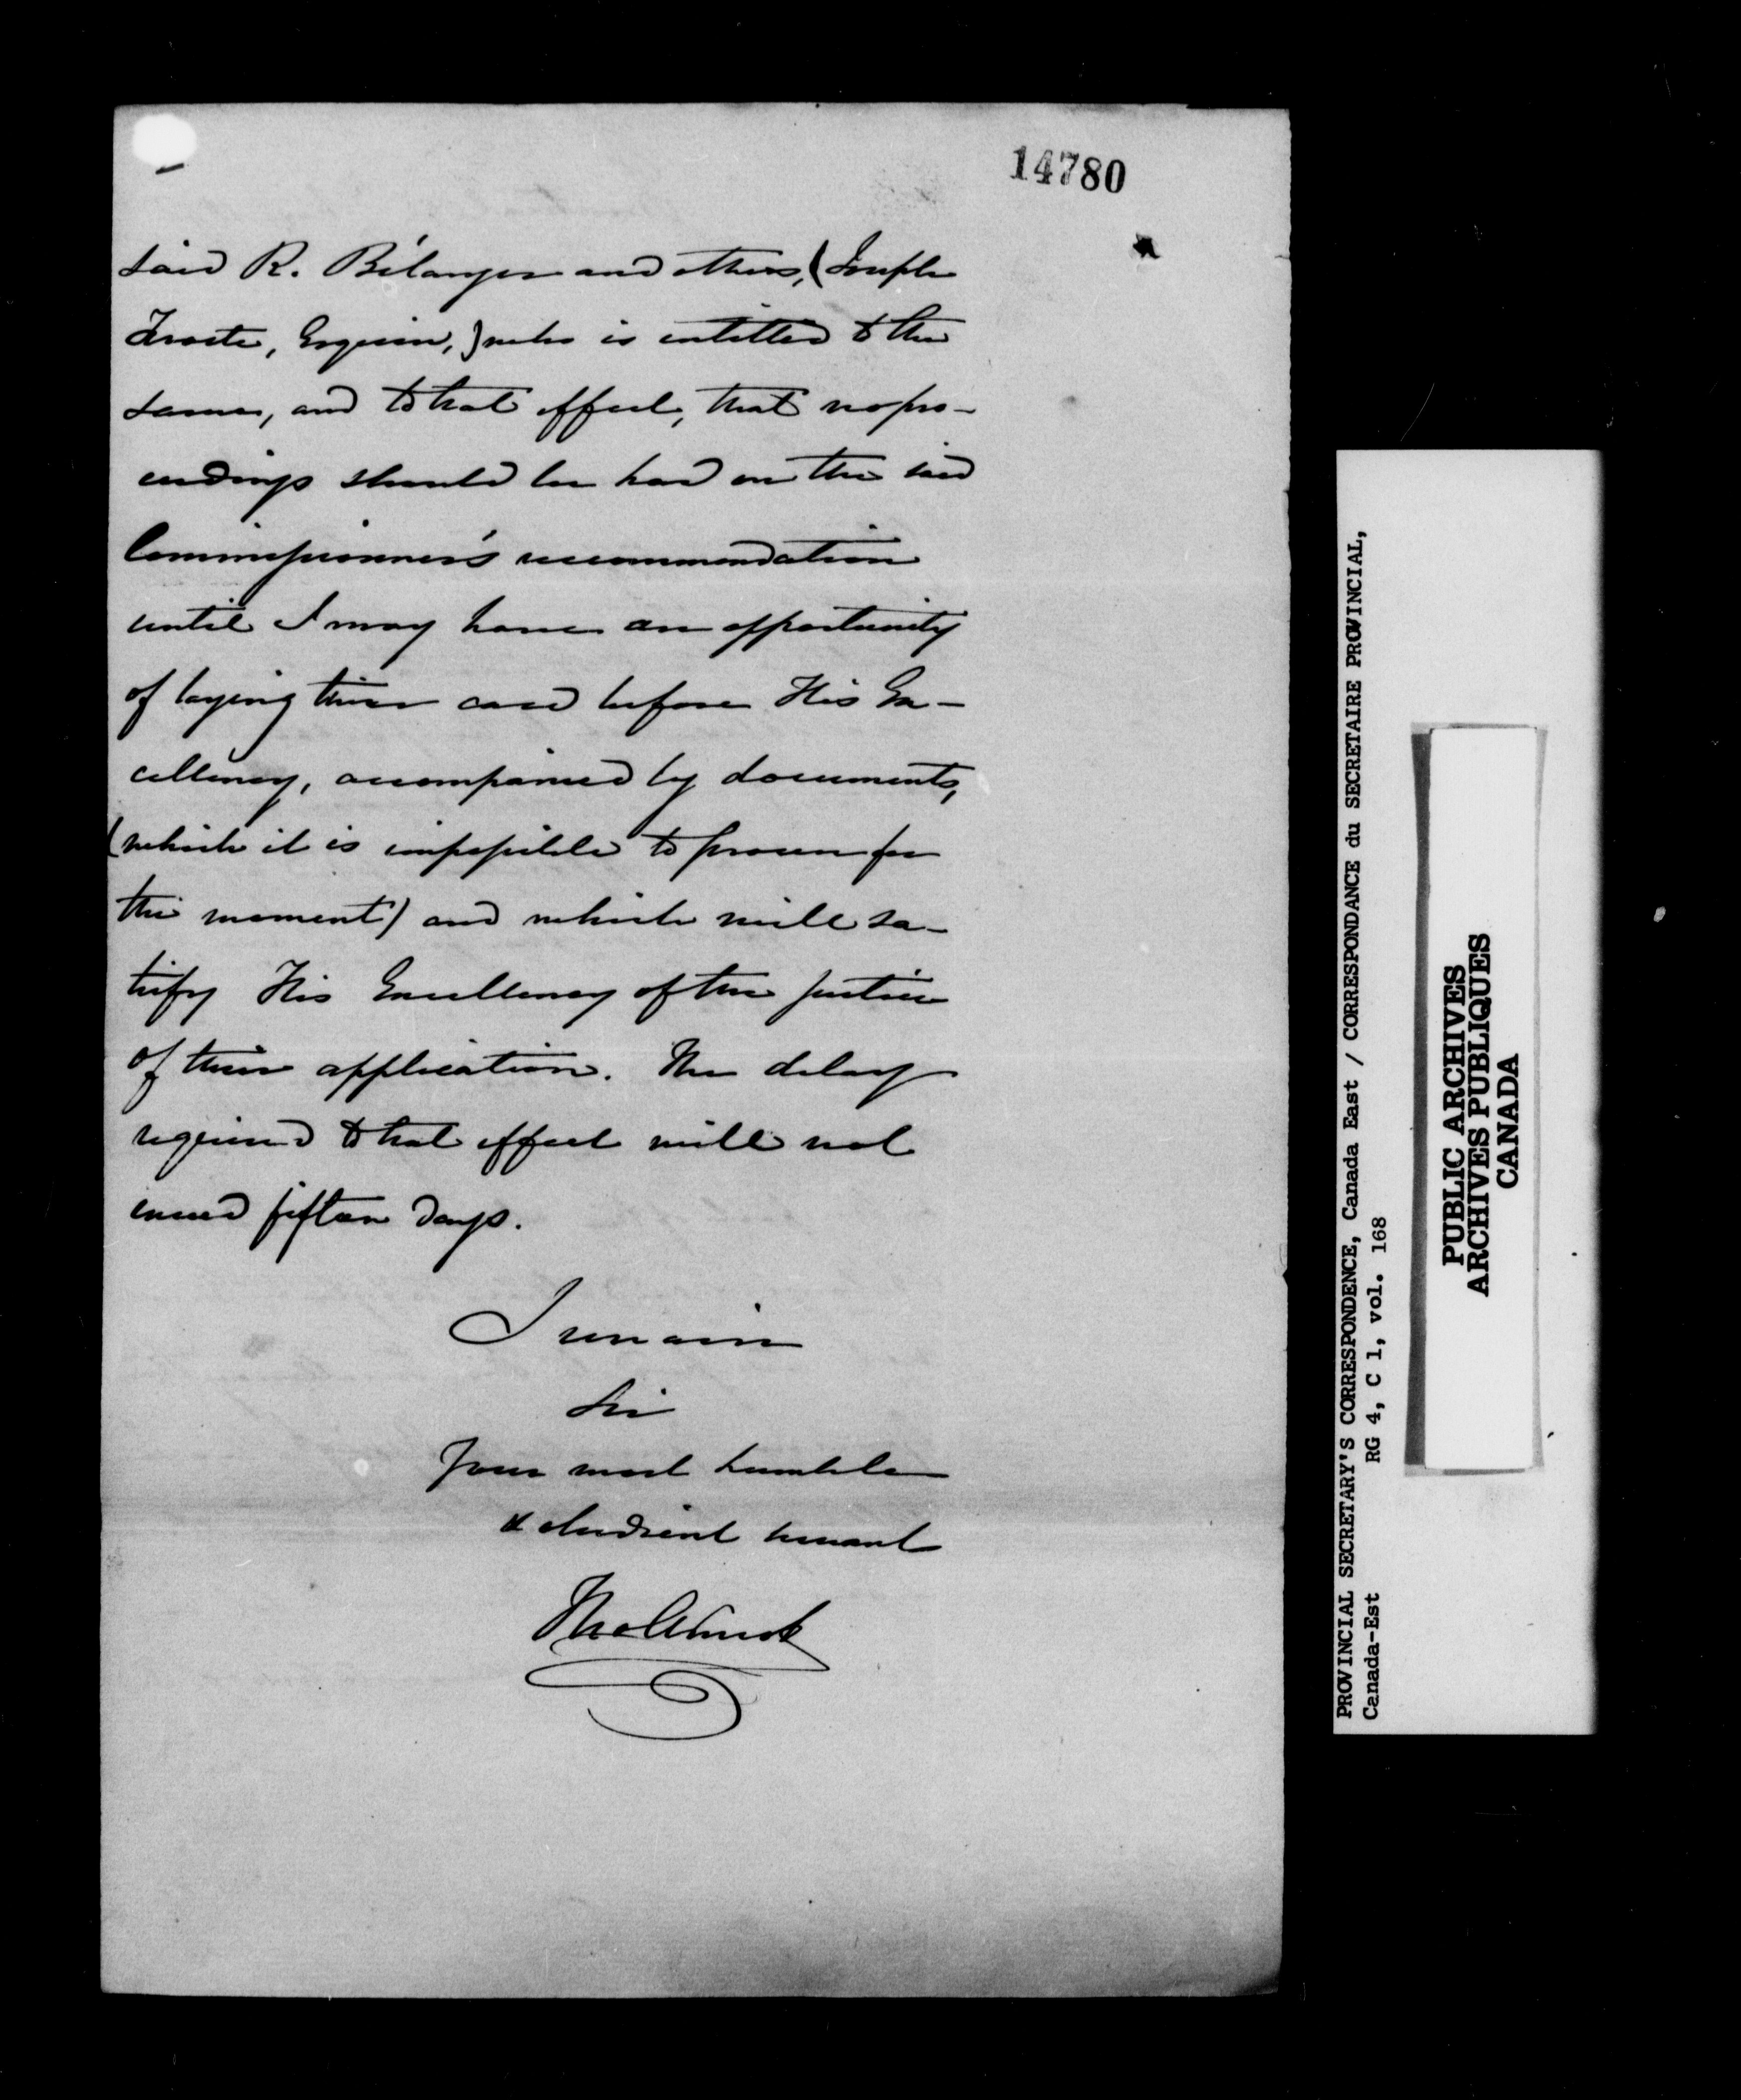 14780
said R. Bélanger and others, (Joseph
Fraste, Esquire,) who is entitled to the
same, and to that effect, that no pro-
ceedings should be had on the said
Commissionner's recommendation
until I may have an opportunity
of laying their case before His Ex-
cellency, accompanied by documents,
(which it is impossible to procure for
the moment) and which will sa-
tisfy His Excellency of the justice
of their application. The delay
required to that effect will not
exceed fifteen days.
I remain
Sir
Your most humble
& obedient servant
PROVINCIAL SECRETARY'S CORRESPONDENCE, Canada East / CORRESPONDANCE du SECRETAIRE PROVINCIAL,
Canada-Est RG 4, C 1, vol. 168
PUBLIC ARCHIVES
ARCHIVES PUBLIQUES
CANADA